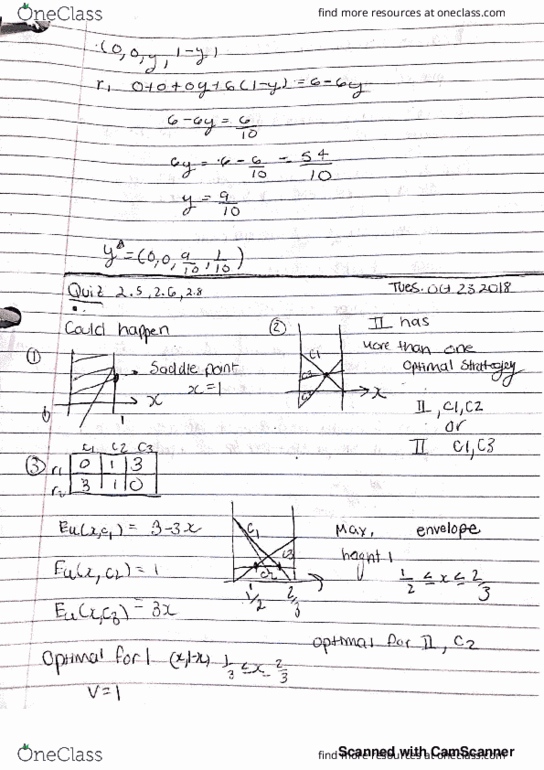 OneClass
find more resources at oneclass.com
(0,0,y,1-y)
r1 0+0+0y+6(1-y)=6-6y
6-6y=6/10
6y=6-6/10=54/10
y=9/10
y*=(0,0,9/10,1/10)
Quiz 2.5,2.6,2.8
Tues. Oct 23 2018
Could happen
① Saddle point
x=1
x
1
② C1
C2
x
II has
more than one
optimal strategy
II, C1,C2
or
II C1,C3
③ C1 C2 C3
r1 0 1 3
r2 3 1 0
Eu(x,c1)= 3-3x
Eu(x,c2)=1
Eu(x,c3)=3x
C1
C3
C2
1/2 2/3
Max, envelope
haght 1
1/2 ≤ x ≤ 2/3
optimal for II, C2
Optimal for I (x,1-x) 1/3 ≤ x ≤ 2/3
V=1
OneClass
find more resources at oneclass.com
Scanned with CamScanner